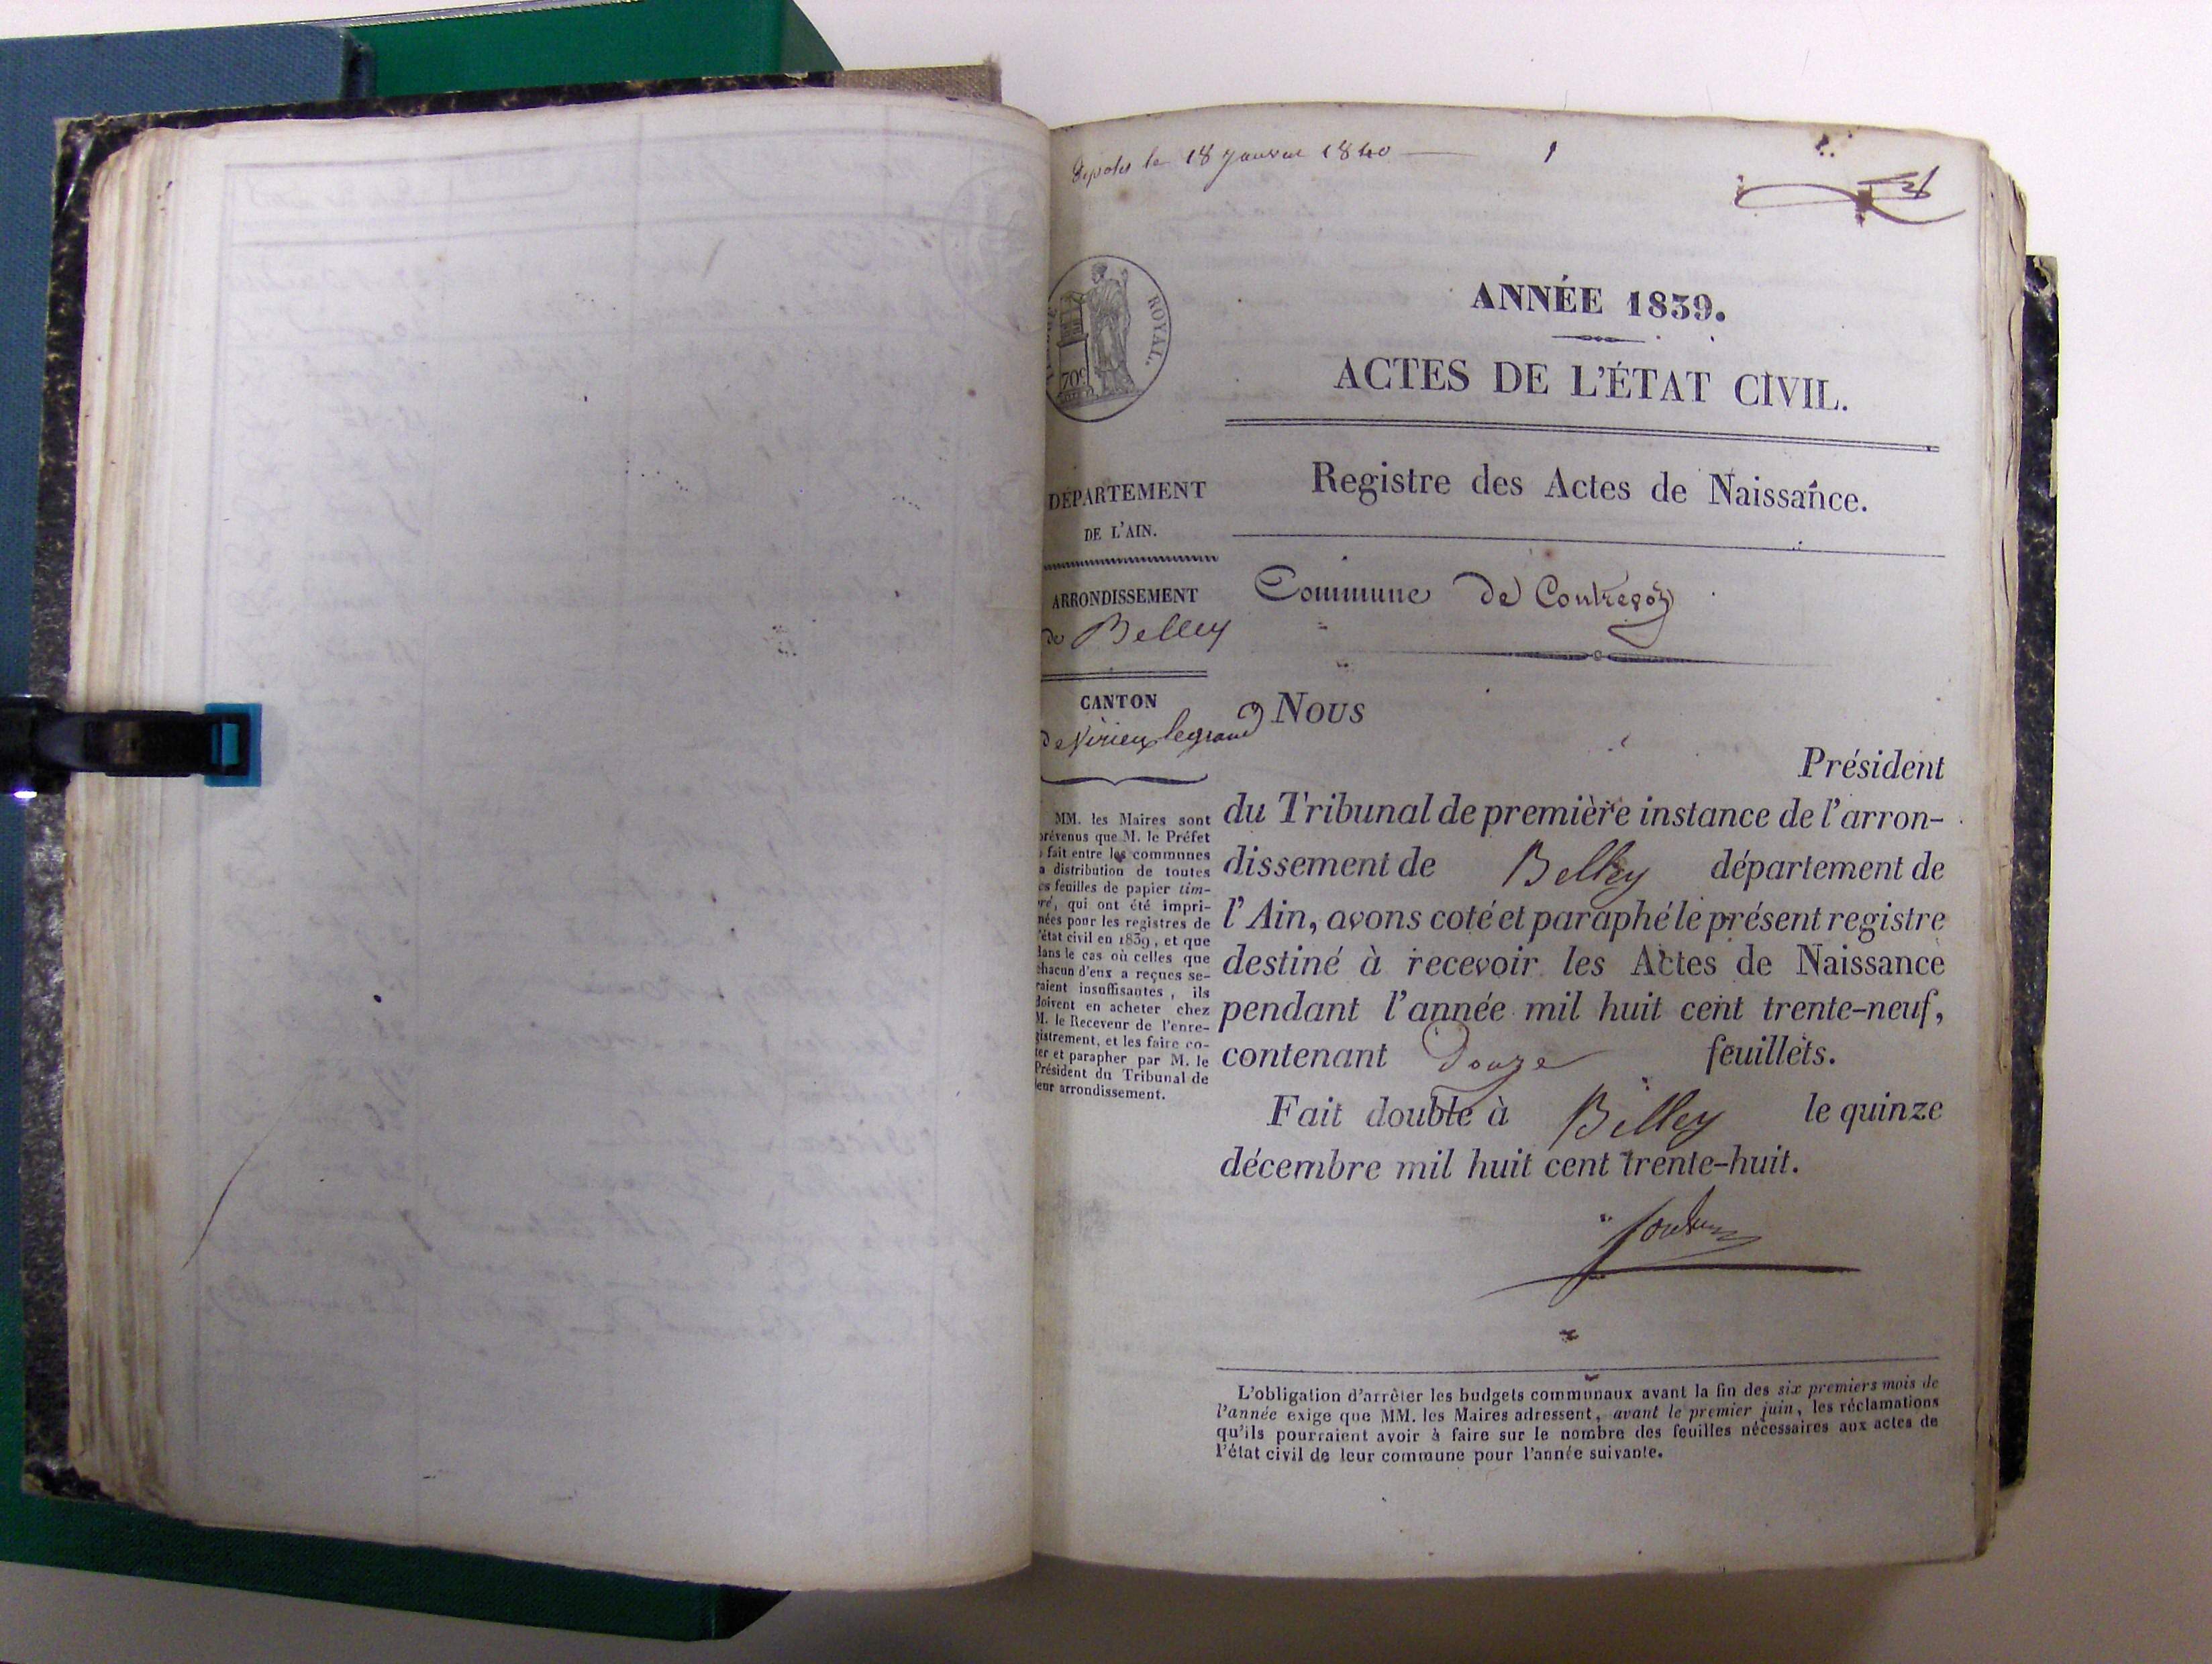 Déposé le 18 Janvier 1840 — 1
ROYAL.
70c
ANNÉE 1839.
ACTES DE L'ÉTAT CIVIL.
DÉPARTEMENT
DE L'AIN.
Registre des Actes de Naissance.
ARRONDISSEMENT
de Belley
Commune de Contrevoz
CANTON
de Virieu legrand
MM. les Maires sont
prévenus que M. le Préfet
a fait entre les communes
la distribution de toutes
les feuilles de papier tim-
bré, qui ont été impri-
mées pour les registres de
l'état civil en 1839, et que
dans le cas où celles que
chacun d'eux a reçues se-
raient insuffisantes, ils
doivent en acheter chez
M. le Receveur de l'enre-
gistrement, et les faire co-
ter et parapher par M. le
Président du Tribunal de
leur arrondissement.
Nous
Président
du Tribunal de première instance de l'arron-
dissement de Belley département de
l'Ain, avons coté et paraphé le présent registre
destiné à recevoir les Actes de Naissance
pendant l'année mil huit cent trente-neuf,
contenant Douze feuillets.
Fait double à Belley le quinze
décembre mil huit cent trente-huit.
L'obligation d'arrêter les budgets communaux avant la fin des six premiers mois de
l'année exige que MM. les Maires adressent, avant le premier juin, les réclamations
qu'ils pourraient avoir à faire sur le nombre des feuilles nécessaires aux actes de
l'état civil de leur commune pour l'année suivante.